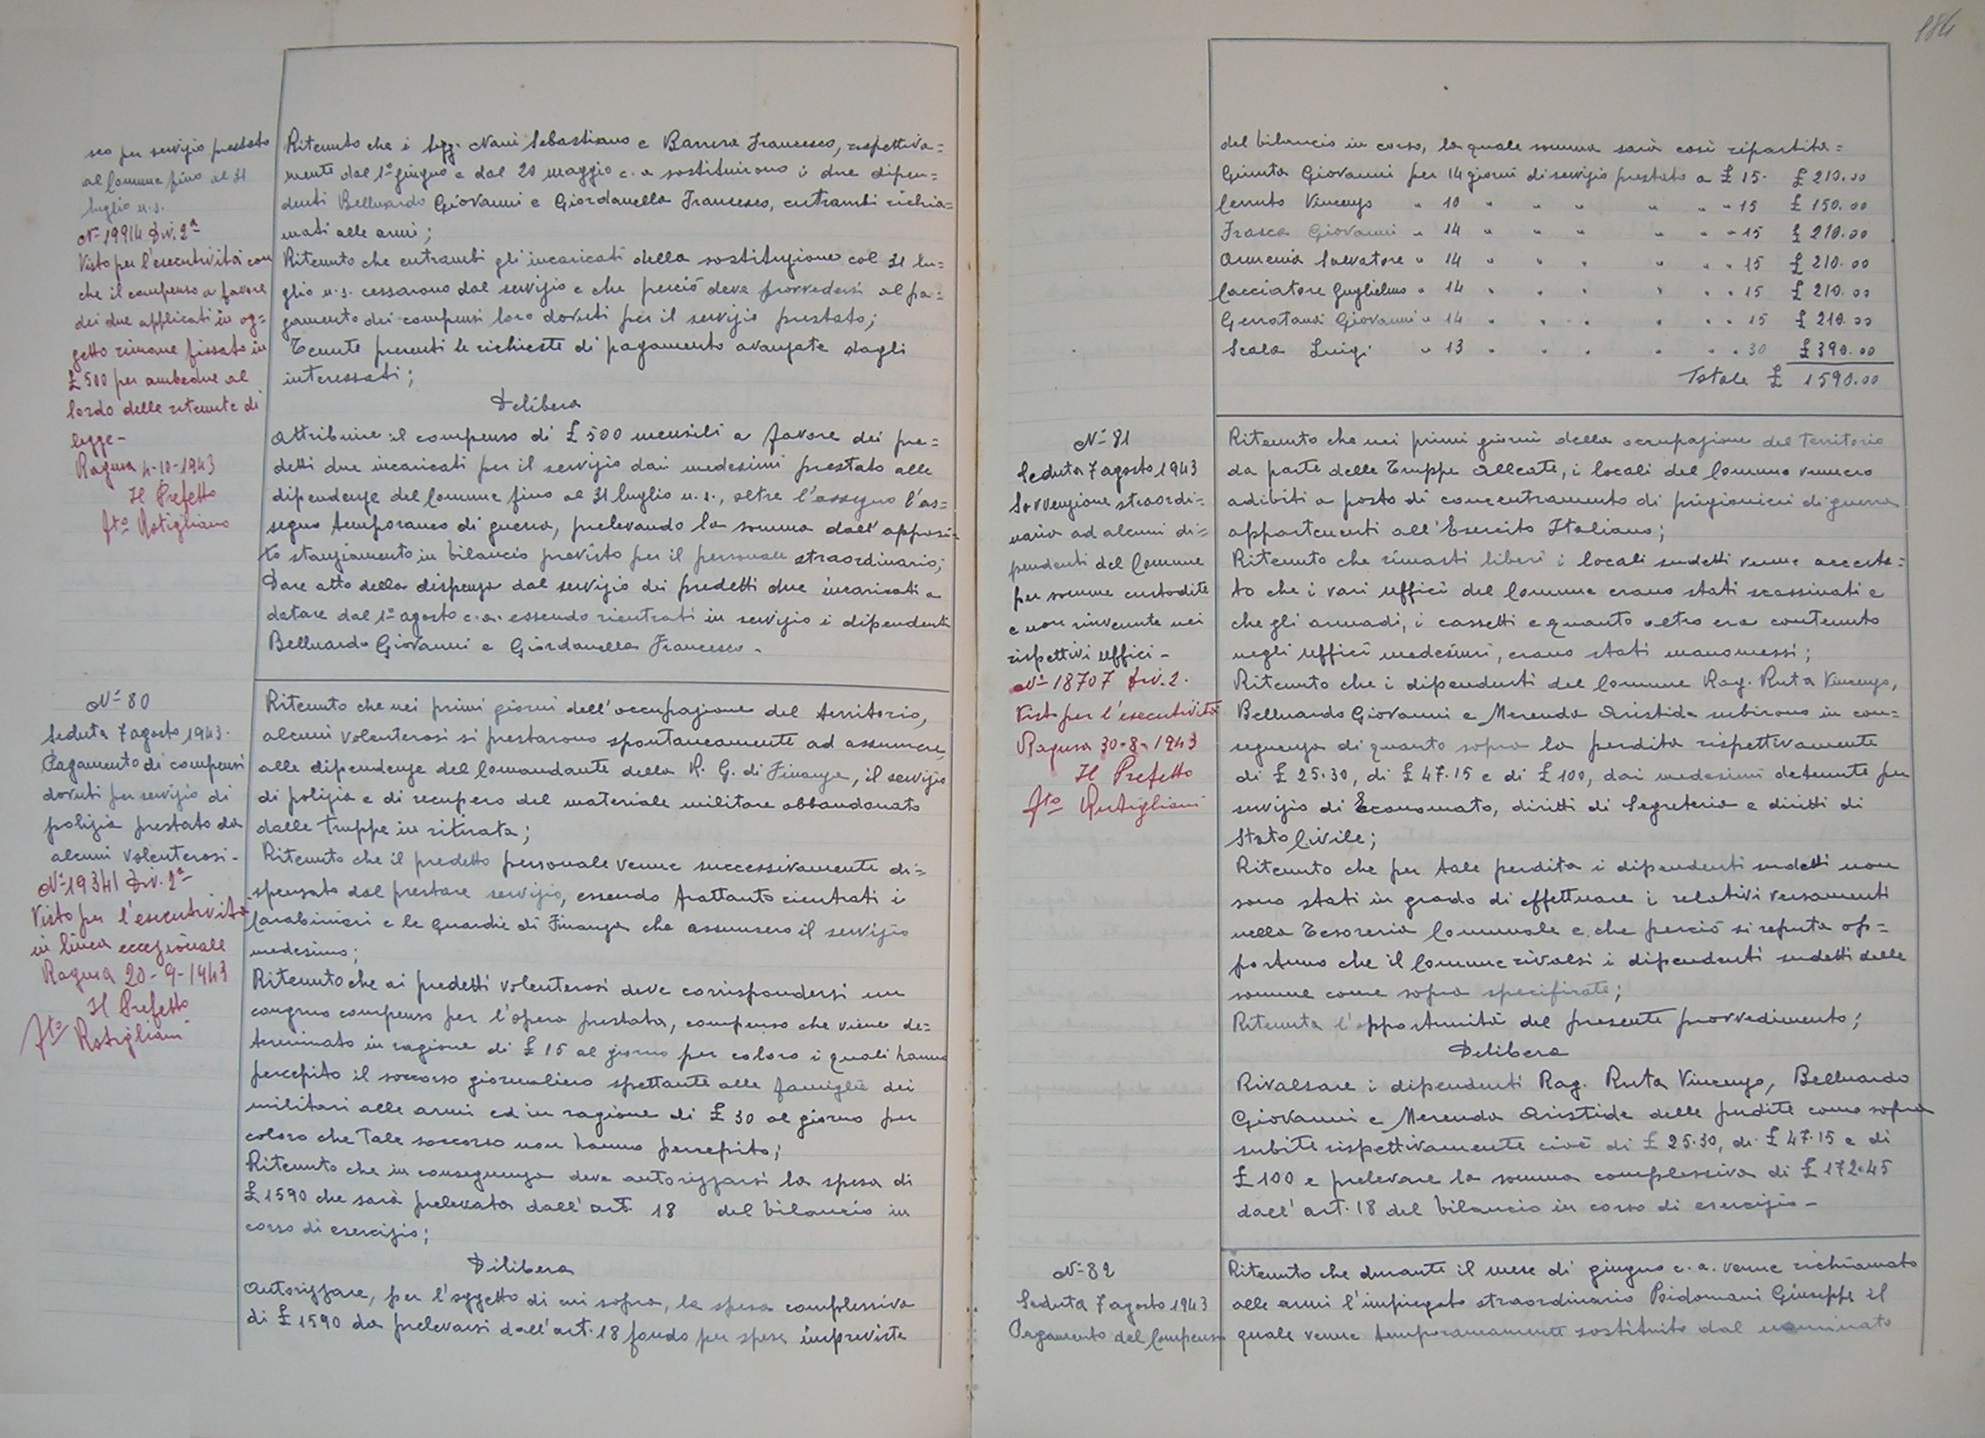 so per servizio prestato
al Comune fino al 31
luglio u.s.
N° 19914 Div. 2ª
Visto per l'esecutività con
che il compenso a favore
dei due applicati in og=
getto rimane fissato in
£ 500 per ambedue al
lordo delle ritenute di
legge -
Ragusa 4-10-1943
Il Prefetto
Fto
Ritenuto che i Sigg. Nani Sebastiano e Barrera Francesco, rispettiva=
mente dal 1° giugno e dal 20 maggio c.a sostituirono i due dipen=
denti Belluardo Giovanni e Giordanella Francesco, entrambi richia=
mati alle armi;
Ritenuto che entrambi gli incaricati della sostituzione col 31 lu=
glio u.s. cessarono dal servizio e che perciò deve provvedersi al pa=
gamento dei compensi loro dovuti per il servizio prestato;
Tenute presenti le richieste di pagamento avanzate dagli
interessati;
Delibera
Attribuire il compenso di £ 500 mensili a favore dei pre=
detti due incaricati per il servizio dai medesimi prestato alle
dipendenze del Comune fino al 31 luglio u.s., oltre l'assegno l'as=
segno temporaneo di guerra, prelevando la somma dall'apposi=
to stanziamento in bilancio previsto per il personale straordinario;
Dare atto della dispensa dal servizio dei predetti due incaricati a
datare dal 1° agosto c.a. essendo rientrati in servizio i dipendenti
Belluardo Giovanni e Giordanella Francesco -
N° 80
Seduta 7 agosto 1943.
Pagamento di compensi
dovuti per servizio di
polizia prestato da
alcuni volenterosi -
N° 19341 Div. 2ª
Visto per l'esecutività
in linea eccezionale
Ragusa 20-9-1943
Il Prefetto
Fto
Rostigliani
Ritenuto che nei primi giorni dell'occupazione del territorio,
alcuni volenterosi si prestarono spontaneamente ad assumere,
alle dipendenze del Comandante della R. G. di Finanza, il servizio
di polizia e di recupero del materiale militare abbandonato
dalle truppe in ritirata;
Ritenuto che il predetto personale venne successivamente di=
spensato dal prestare servizio, essendo frattanto rientrati i
Carabinieri e le Guardie di Finanza che assunsero il servizio
medesimo;
Ritenuto che ai predetti volenterosi deve corrispondersi un
congruo compenso per l'opera prestata, compenso che viene de=
terminato in ragione di £ 15 al giorno per coloro i quali hanno
percepito il soccorso giornaliero spettante alle famiglie dei
militari alle armi ed in ragione di £ 30 al giorno per
coloro che tale soccorso non hanno percepito;
Ritenuto che in conseguenza deve autorizzarsi la spesa di
£ 1590 che sarà prelevata dall'art. 18 del bilancio in
corso di esercizio;
Delibera
Autorizzare, per l'oggetto di cui sopra, la spesa complessiva
di £ 1590 da prelevarsi dall'art. 18 fondo per spese impreviste
184
del bilancio in corso, la quale somma sarà così ripartita=
Giunta Giovanni per 14 giorni di servizio prestato a £ 15. £ 210.00
Cerruto Vincenzo " 10 " " " " " " 15 £ 150.00
Frasca Giovanni " 14 " " " " " " 15 £ 210.00
Armenia Salvatore " 14 " " " " " 15 £ 210.00
Cacciatore Guglielmo " 14 " " " " " 15 £ 210.00
Giovanni " 14 " " " " " 15 £ 210.00
Scala Luigi " 13 " " " " " 30 £ 390.00
Totale £ 1590.00
N° 81
Seduta 7 agosto 1943
Sovvenzione straordi=
naria ad alcuni di=
pendenti del Comune
per somme custodite
e non rinvenute nei
rispettivi uffici -
N° 18707 Div. 2.
Visto per l'esecutività
Ragusa 30-8-1943
Il Prefetto
Fto Rostigliani
Ritenuto che nei primi giorni della occupazione del territorio
da parte delle Truppe Alleate, i locali del Comune vennero
adibiti a posto di concentramento di prigionieri di guerra
appartenenti all'Esercito Italiano;
Ritenuto che rimasti liberi i locali sudetti venne accerta=
to che i vari uffici del Comune erano stati scassinati e
che gli armadi, i cassetti e quanto altro era contenuto
negli uffici medesimi, erano stati manomessi;
Ritenuto che i dipendenti del Comune Rag. Ruta Vincenzo,
Belluardo Giovanni e Merenda Aristide subirono in con=
seguenza di quanto sopra la perdita rispettivamente
di £ 25.30, di £ 47.15 e di £ 100, dai medesimi detenute per
servizio di Economato, diritti di Segreteria e diritti di
Stato Civile;
Ritenuto che per tale perdita i dipendenti sudetti non
sono stati in grado di effettuare i relativi versamenti
nella Tesoreria Comunale e che perciò si reputa op=
portuno che il Comune rivalsi i dipendenti sudetti delle
somme come sopra specificate;
Ritenuta l'opportunità del presente provvedimento;
Delibera
Rivalsare i dipendenti Rag. Ruta Vincenzo, Belluardo
Giovanni e Merenda Aristide delle perdite come sopra
subite rispettivamente cioè di £ 25.30, di £ 47.15 e di
£ 100 e prelevare la somma complessiva di £ 172.45
dall'art. 18 del bilancio in corso di esercizio -
N° 82
Seduta 7 agosto 1943
Pagamento del Compenso
Ritenuto che durante il mese di giugno c.a. venne richiamato
alle armi l'impiegato straordinario Poidomani Giuseppe il
quale venne temporaneamente sostituito dal nominato